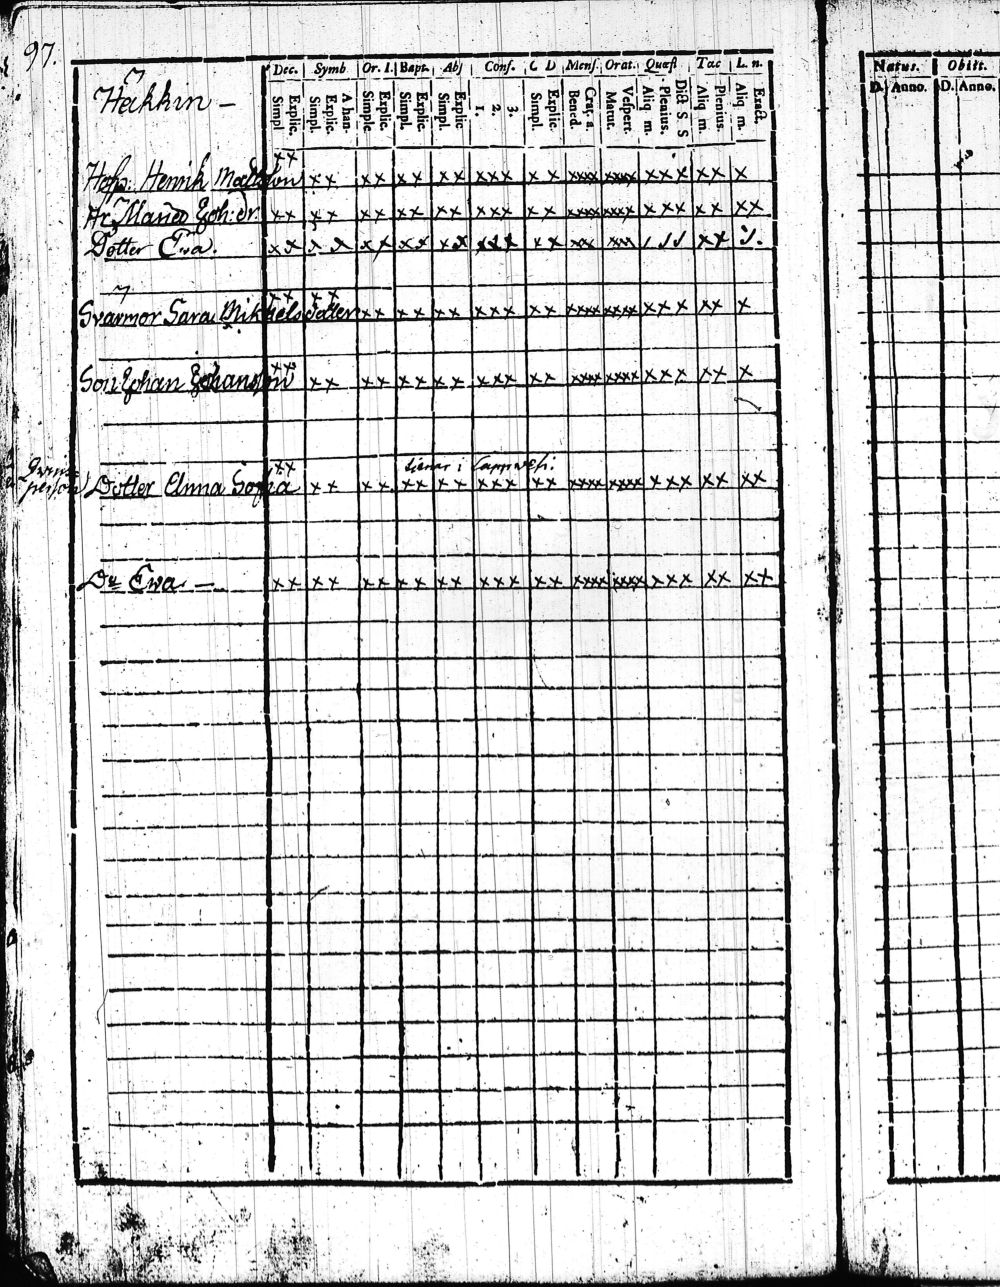 97.
Dec. Symb Or. I. Bapt. Abſ Conf. C D Menſ. Orat. Quæſt Tac L. n.
Simpl Explic. Simpl. Explic. A than. Simple Explic. Simpl. Explic. Simpl. Explic 1. 2. 3. Simpl. Explic. Bened. Matut. Veſpert. Aliq m. Plenius. Dict S S Aliq m. Plenius. Aliq m. Exact.
Natus. Obiit.
D. Anno. D. Anno.
Hakkin –
xx
Henrik xx xx xx xx xxx xx xxxx xxxx xxx xx x
xx xx xx xx xx xxx xx xxxx xxxx xxx xx xx
Dotter Ewa. xx xx xx xx xx xxx xx xx
xx xx
Svärmor Sara Mikhelsdotter xx xx xx xxx xx xxxx xxxx xxx xx x
xx
Son Johan Johansson xx xx xx xx xxx xx xxxx xxxx xxx xx x
xx tienar i
person Dotter Anna Sofia xx xx xx xx xxx xx xxxx xxxx xxx xx xx
Dr Ewa – xx xx xx xx xx xxx xx xxxx xxxx xxx xx xx